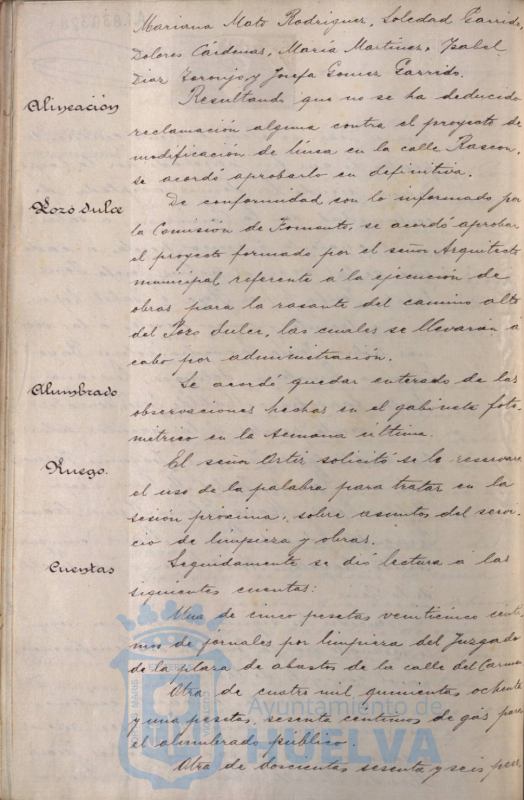 Mariana Mato Rodriguez, Soledad Garrido,
Dolores Cárdenas, María Martinez, Isabel
Diaz y Josefa Gomez Garrido.
Alineación
Resultando que no se ha deducido
reclamación alguna contra el proyecto de
modificación de linea en la calle Rascon,
se acordó aprobarlo en definitiva.
Pozo dulce
De conformidad con lo informado por
la Comisión de Fomento, se acordó aprobar
el proyecto formado por el señor Arquitecto
municipal, referente á la ejecución de
obras para la rasante del camino alto
del Pozo dulce, las cuales se llevarán á
cabo por administración.
Alumbrado
Se acordó quedar enterado de las
observaciones hechas en el gabinete foto-
métrico en la semana última.
Ruego.
El señor Ortiz solicitó se le reservara
el uso de la palabra para tratar en la
sesión próxima, sobre asuntos del servi-
cio de limpieza y obras.
Cuentas
Seguidamente se dió lectura á las
siguientes cuentas:
Una de cinco pesetas veinticinco cénti-
mos de jornales por limpieza del Juzgado
de la plaza de abastos de la calle del Carmen
Otra de cuatro mil quinientas ochenta
y una pesetas, sesenta céntimos de gás para
el alumbrado público.
Otra de doscientas sesenta y seis pese-
Ayuntamiento de
HUELVA